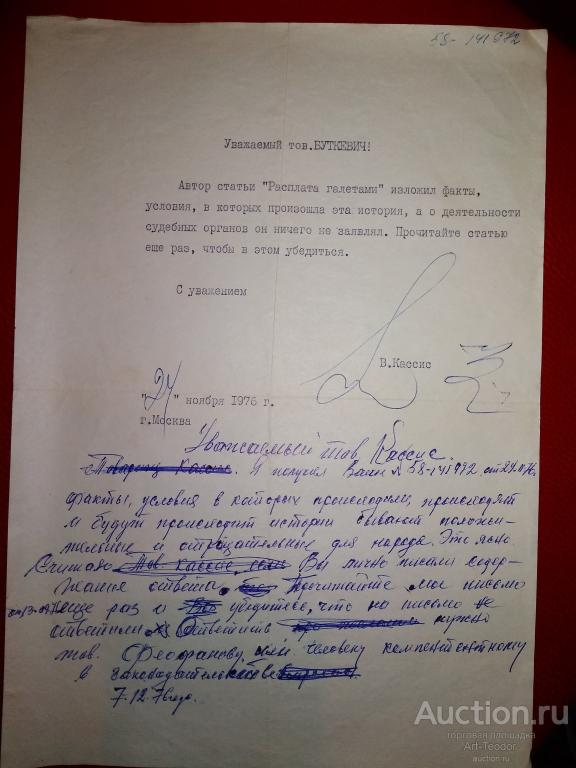 58-141972
Уважаемый тов.БУТКЕВИЧ!
Автор статьи "Расплата галетами" изложил факты,
условия, в которых произошла эта история, а о деятельности
судебных органов он ничего не заявлял. Прочитайте статью
еще раз, чтобы в этом убедиться.
С уважением
В.Кассис
"24" ноября 1976 г.
г.Москва
Уважаемый тов Кассис.
Товарищ Кассис. Я получил Ваш № 58-141972 от 24.11.76
факты, условия в которых происходили, происходят
и будут происходит истории бывают положи-
тельные и отрицательные для народа. Это ясно
Считаю Тов Кассис, Вы лично писали содер-
жание ответа. Прочитайте мое письмо
еще раз и убедитесь, что на письмо не
ответили. Ответить нужно
тов. Феофанову, или человеку компетентному
в законодательстве
7.12.76 года.
Auction.ru
торговая площадка
Art-Teodor
auction.ru